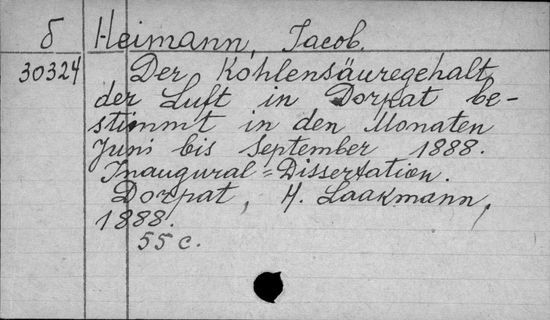 б Heimann, Jacob.
30324 Der Kohlensäuregehalt
der Luft in Dorpat be-
stimmt in den Monaten
Juni bis September 1888.
Inaugural=Dissertation.
Dorpat, H. Laakmann,
1888.
55 c.